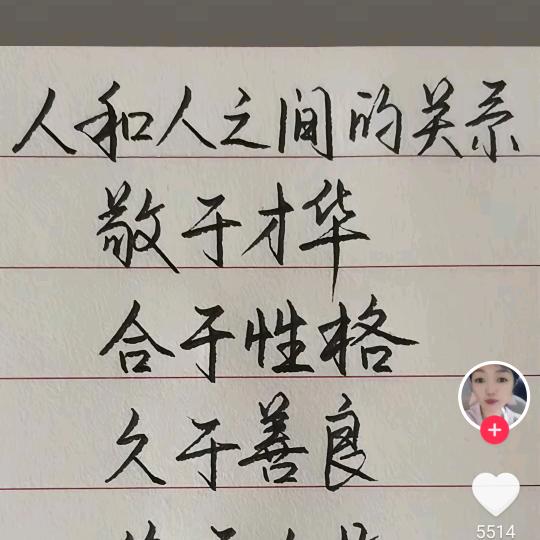 人和人之间的关系
敬于才华
合于性格
久于善良
5514